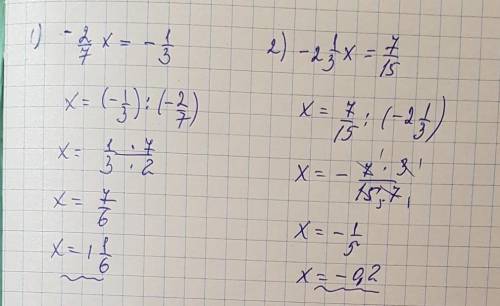 1) -2/7 x = -1/3
x = (-1/3) : (-2/7)
x = 1 · 7 / 3 · 2
x = 7/6
x = 1 1/6
2) -2 1/3 x = 7/15
x = 7/15 : (-2 1/3)
x = - 7 · 3 / 15 · 7
x = -1/5
x = -0,2